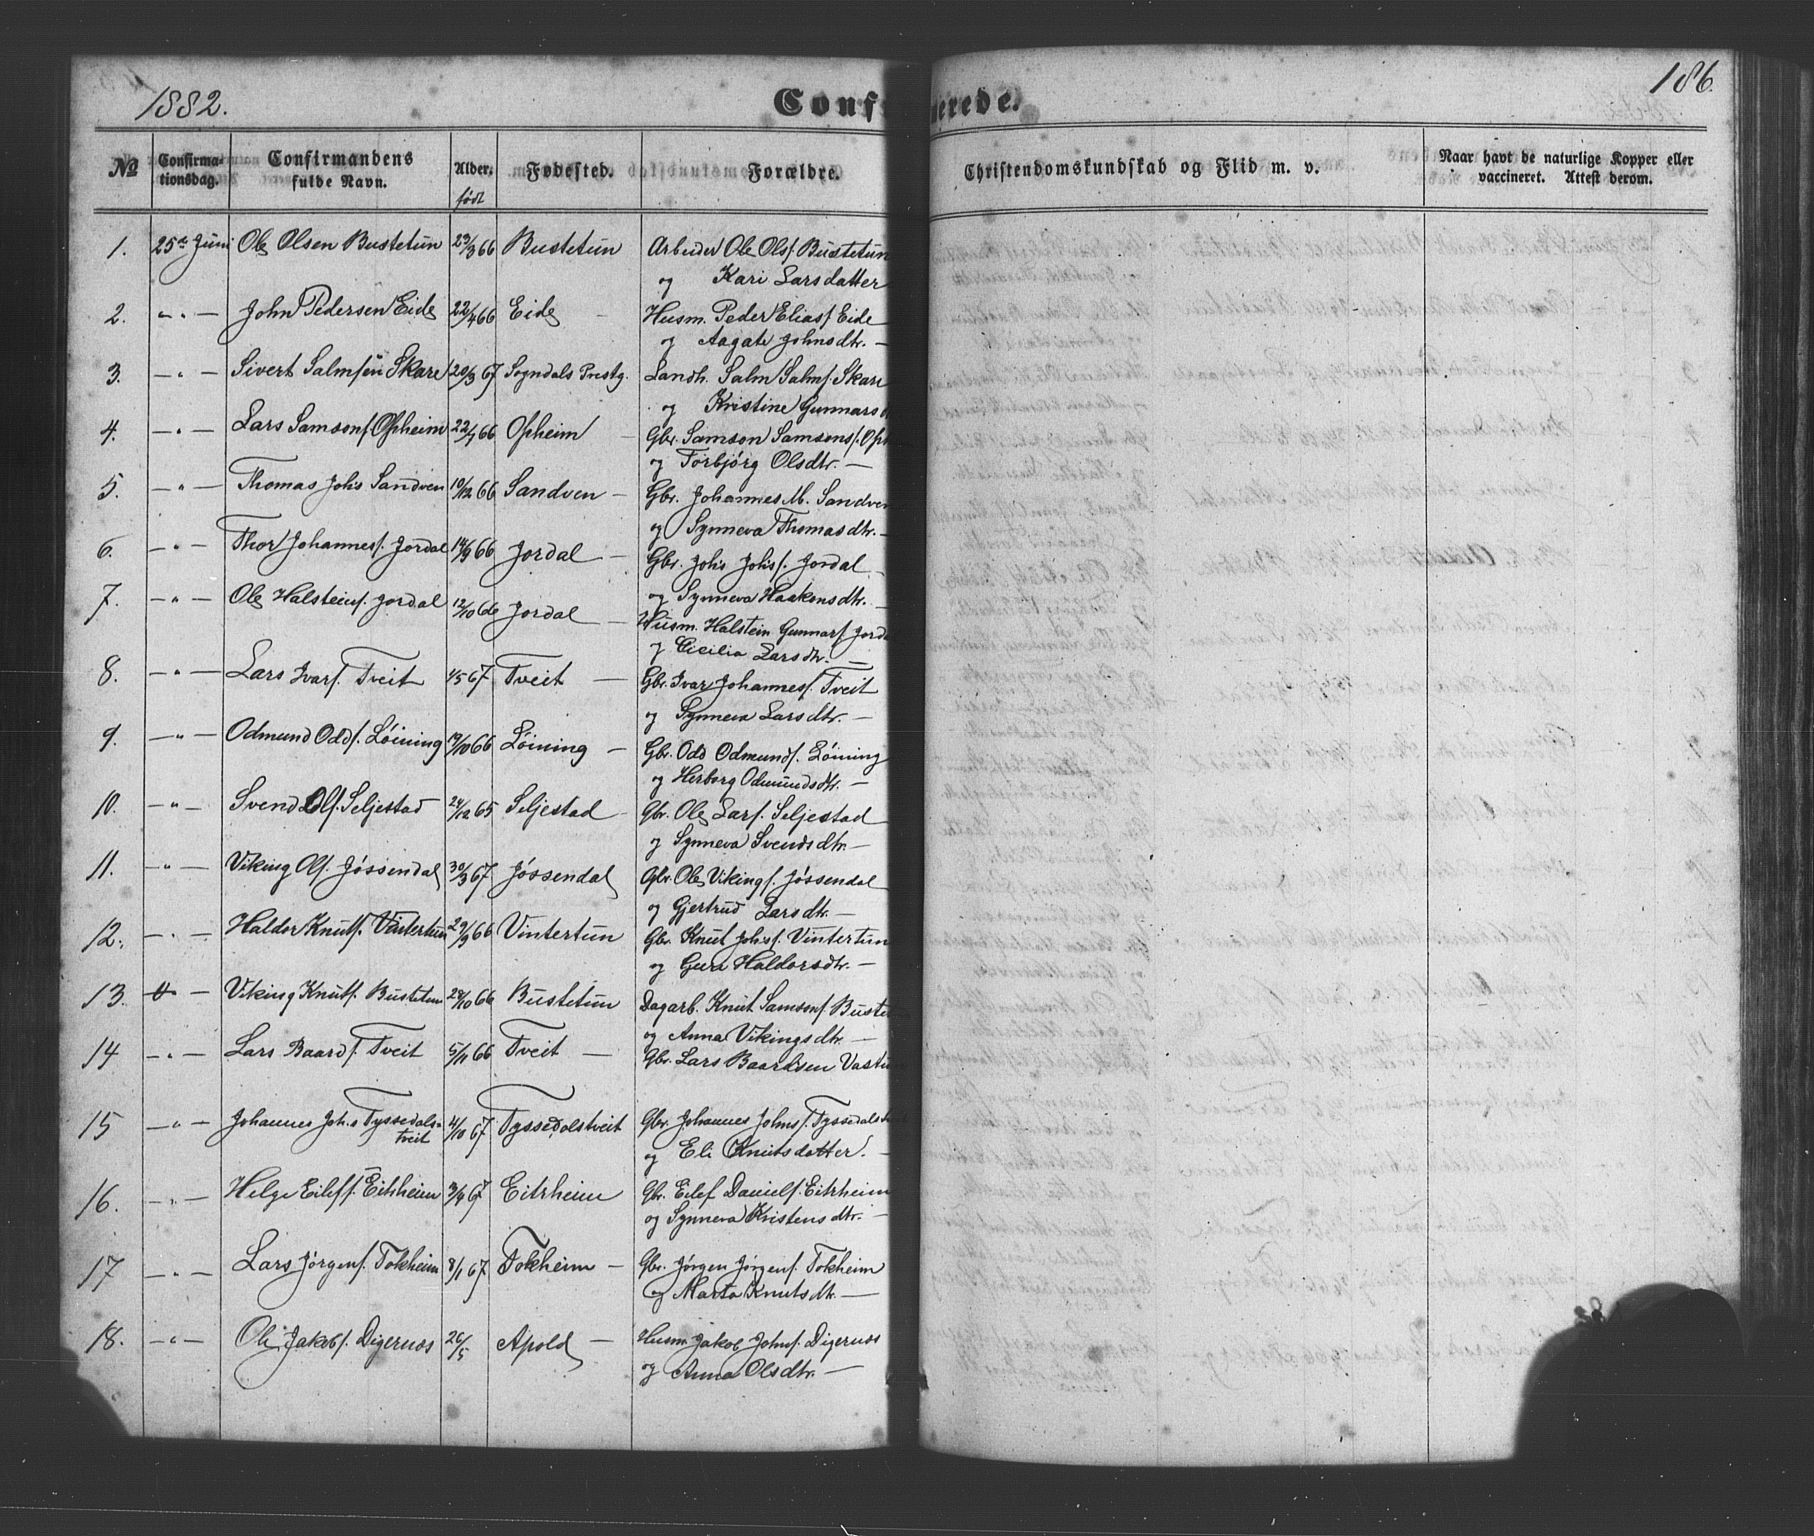 1882.
Conf nerede.
186.
No Confirma-tionsdag. Confirmandens fulde Navn. Alder. født Fødested. Forældre. Christendomskundskab og Flid m. v. Naar havt de naturlige Kopper eller vaccineret. Attest derom.
1. 25de Juni Ole Olsen Bustetun 23/3 66 Bustetun Arbeider Ole Ols. Bustetun
og Kari Larsdatter
2. „ — John Pedersen Eide 22/4 66 Eide Husm. Peder Elias. Eide
og Aagate Johnsdtr. —
3. — „ — Sivert Salmsen Skare 20/3 67 Sogndals Prestg. Landh. Salm Salms. Skare
og Kristine Gunnars
4. — „ — Lars Samsons. Opheim 22/7 66 Opheim — Gbr. Samson Samsons. Oph
og Torbjörg Olsdtr. —
5. — „ — Thomas Johs Sandven 10/12 66 Sandven — Gbr. Johannes M. Sandven
og Synneva Thomasdtr. —
6. — „ — Thor Johannes. Jordal 14/9 66 Jordal — Gbr. Johs Johs. Jordal
og Synneva Haakensdtr. —
7. — „ — Ole Halsteins. Jordal 12/10 66 Jordal — Husm. Halstein Gunnars. Jorda
og Cicilia Larsdtr. —
8. — „ — Lars Ivars. Tveit 4/5 67 Tveit — Gbr. Ivar Johannes. Tveit
og Synneva Larsdtr. —
9. — „ — Odmund Odds. Löining 19/10 66 Löining — Gbr. Odd Odmunds. Löining
og Herborg Odmundsdtr. —
10. — „ — Svend Ols. Seljestad 24/12 65 Seljestad Gbr. Ole Lars. Seljestad
og Synneva Svendsdtr. —
11. — „ — Viking Ols. Jössendal 30/3 67 Jössendal Gbr. Ole Vikings. Jössendal
og Gjertrud Larsdtr. —
12. — „ — Haldor Knuts. Vintertun 29/9 66 Vintertun Gbr. Knut Johs. Vintertun
og Guri Haldorsdtr. —
13. „ — Viking Knuts. Bustetun 28/10 66 Bustetun Dagarb. Knut Samsons. Buste
og Anna Vikingsdtr. —
14 — „ — Lars Baards. Tveit 5/11 66 Tveit — Gbr. Lars Baardsen Vastun
15 — „ — Johannes Johs Tyssedals-tveit 4/10 67 Tyssedalstveit Gbr. Johannes Johns. Tyssedals
og Eli Knutsdatter. —
16. — „ — Helge Eilefs. Eitrheim 3/9 67 Eitrheim Gbr. Eilef Daniels. Eitrheim
og Synneva Kristensdtr. —
17 — „ — Lars Jörgens. Tokheim 8/1 67 Tokheim — Gbr. Jörgen Jörgens. Tokheim
og Marta Knutsdtr. —
18. — „ — Ole Jakobs. Digernæs 26/5 Apold — Husm. Jakob Johns. Digernæs
og Anna Olsdtr. —